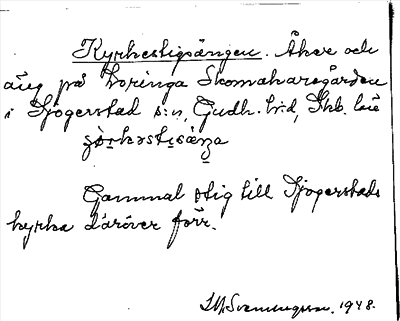 Kyrkestigsängen. Åker och
äng på Loringa Skomakaregården
i Sjogerstad s:n, Gudh. h:d, Skb. län

Gammal stig till Sjogerstads
kyrka däröver förr.
1948.